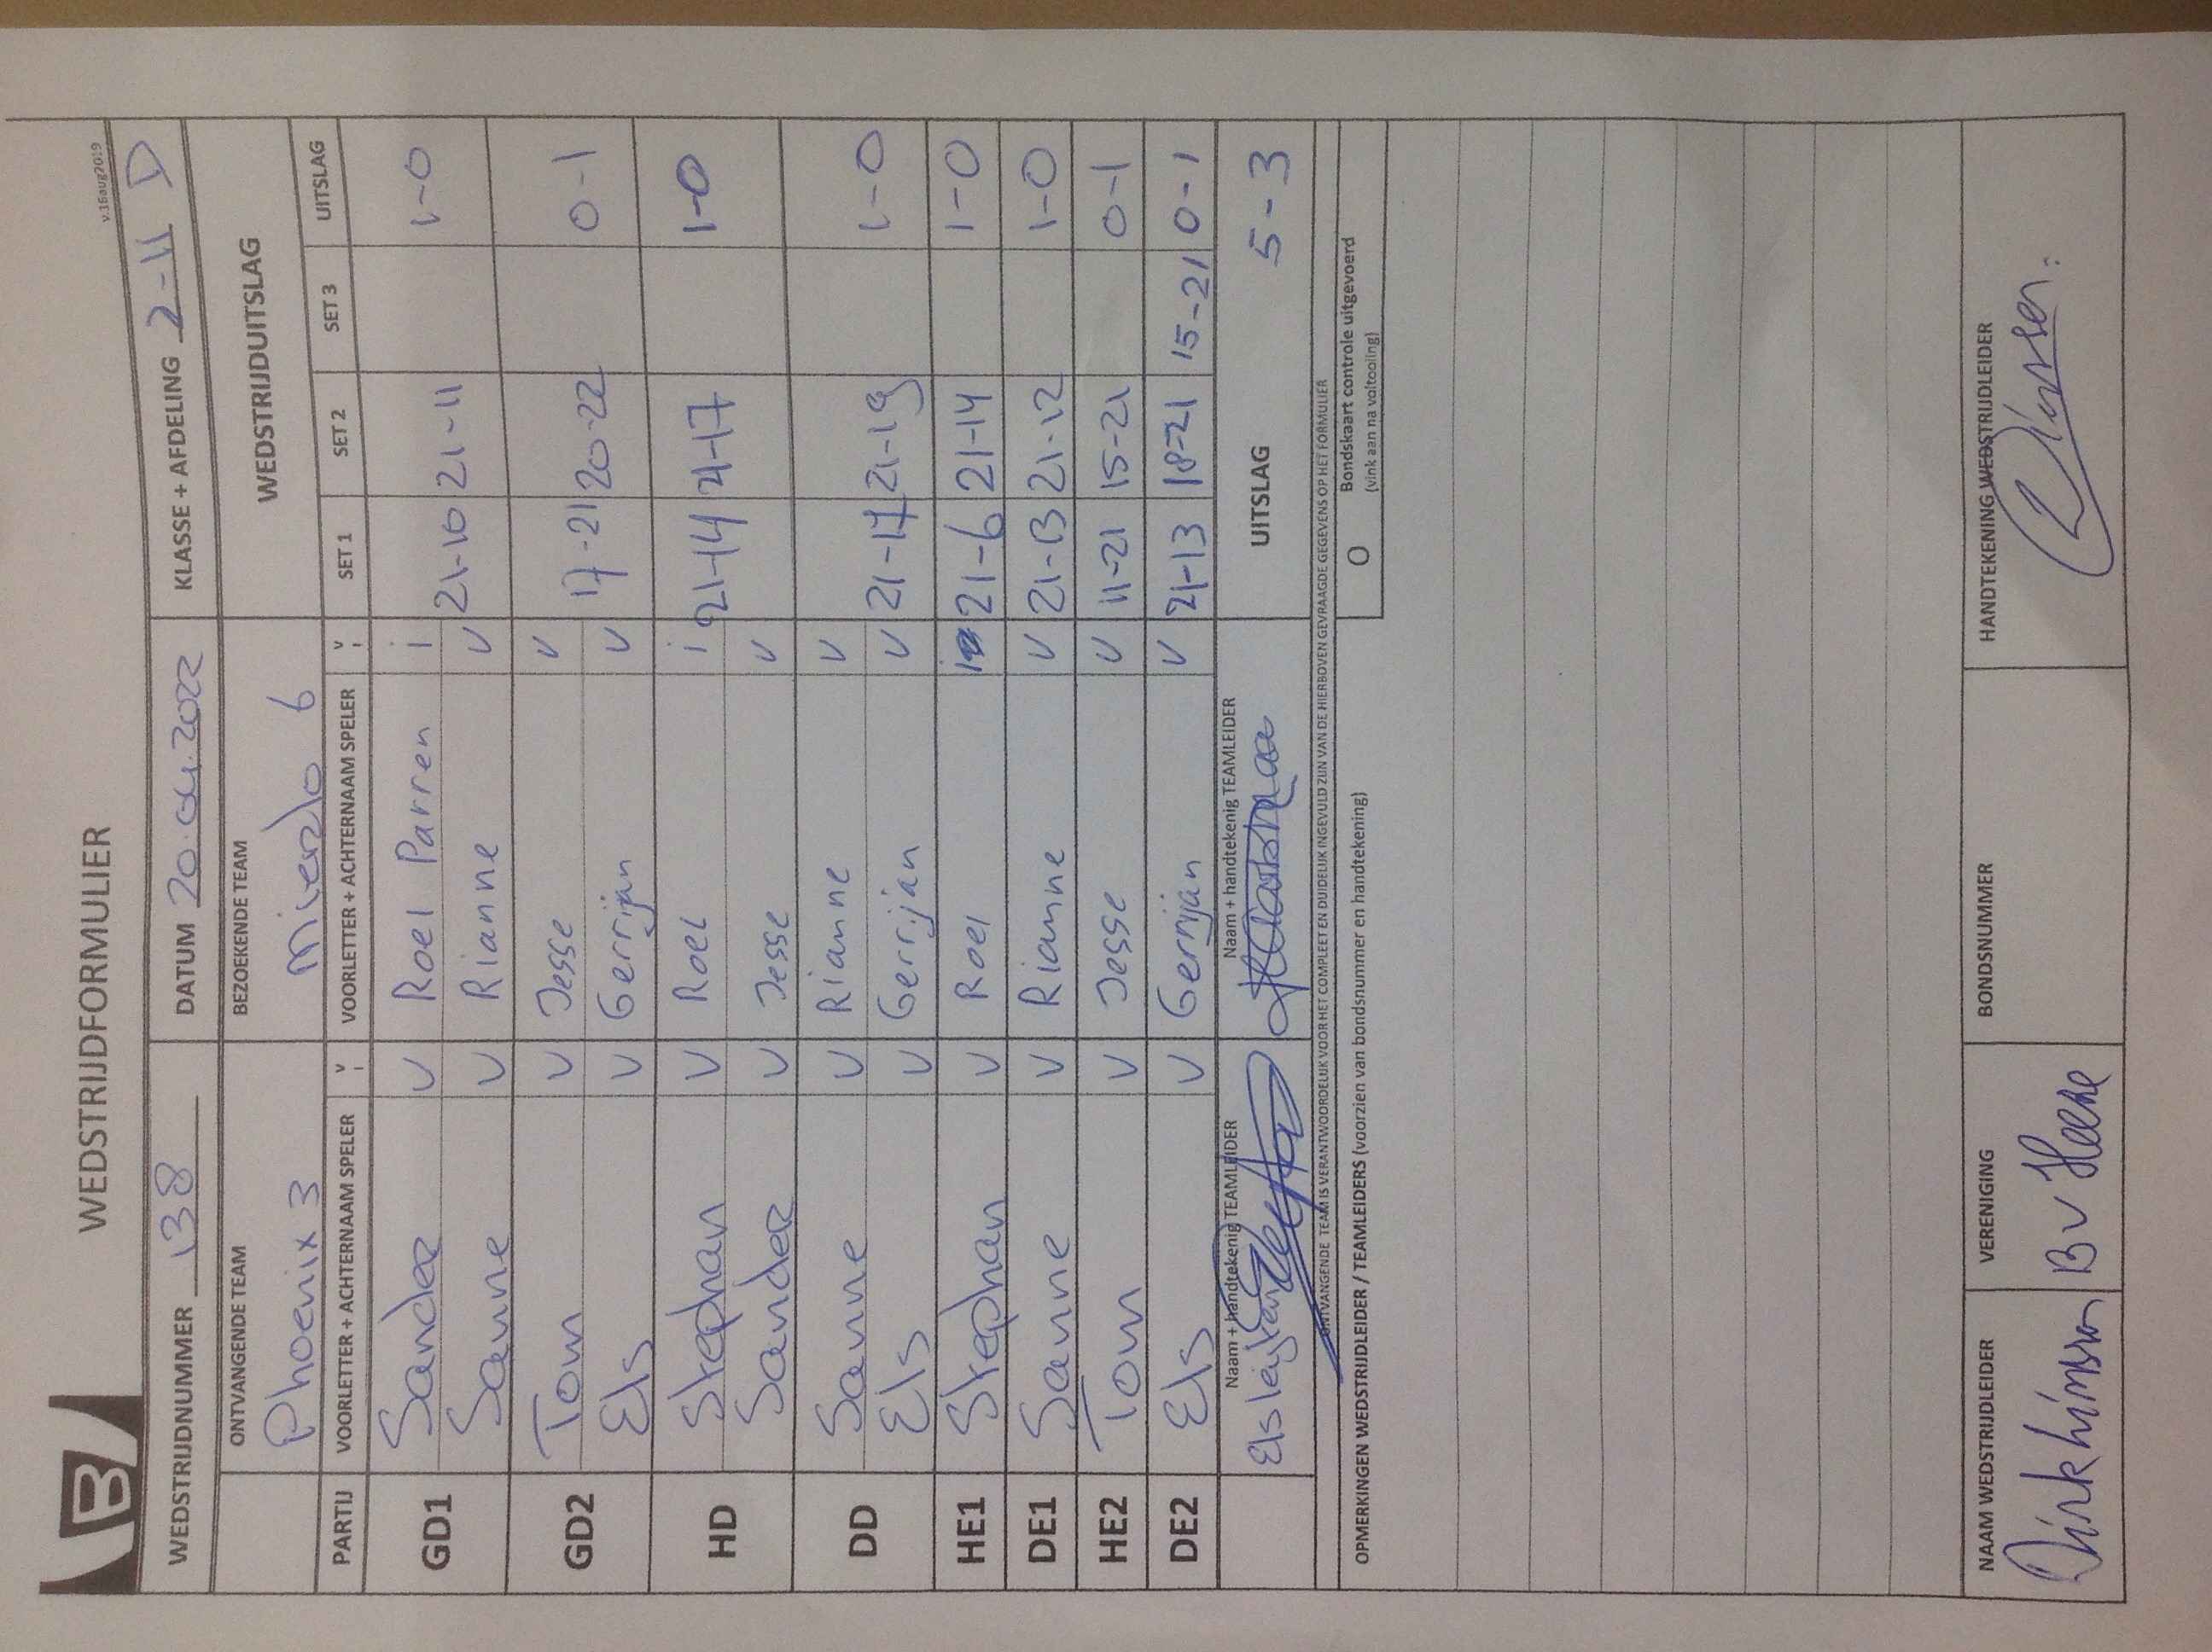 WEDSTRIJDFORMULIER
v.16aug2019
B
WEDSTRIJDNUMMER 138 DATUM 20.04.2022 KLASSE + AFDELING 2-11 D
ONTVANGENDE TEAM BEZOEKENDE TEAM WEDSTRIJDUITSLAG
Phoenix 3 Mierlo 6
PARTIJ VOORLETTER + ACHTERNAAM SPELER v i VOORLETTER + ACHTERNAAM SPELER v i SET 1 SET 2 SET 3 UITSLAG
GD1 Sander v Roel Parren i 21-10 21-11 1-0
Sanne v Rianne v
GD2 Tom v Jesse v 17-21 20-22 0-1
Els v Gerrijan v
HD Stephan v Roel i 21-14 21-17 1-0
Sander v Jesse v
DD Sanne v Rianne v 21-17 21-19 1-0
Els v Gerrijan v
HE1 Stephan v Roel i 21-6 21-14 1-0
DE1 Sanne v Rianne v 21-13 21-12 1-0
HE2 Tom v Jesse v 11-21 15-21 0-1
DE2 Els v Gerrijan v 21-13 18-21 15-21 0-1
Naam + handtekenig TEAMLEIDER Naam + handtekenig TEAMLEIDER UITSLAG 5-3
Els
ONTVANGENDE TEAM IS VERANTWOORDELIJK VOOR HET COMPLEET EN DUIDELIJK INGEVULD ZIJN VAN DE HIERBOVEN GEVRAAGDE GEGEVENS OP HET FORMULIER
OPMERKINGEN WEDSTRIJDLEIDER / TEAMLEIDERS (voorzien van bondsnummer en handtekening) O Bondskaart controle uitgevoerd
(vink aan na voltooiing)
NAAM WEDSTRIJDLEIDER VERENIGING BONDSNUMMER HANDTEKENING WEDSTRIJDLEIDER
Dirk BV